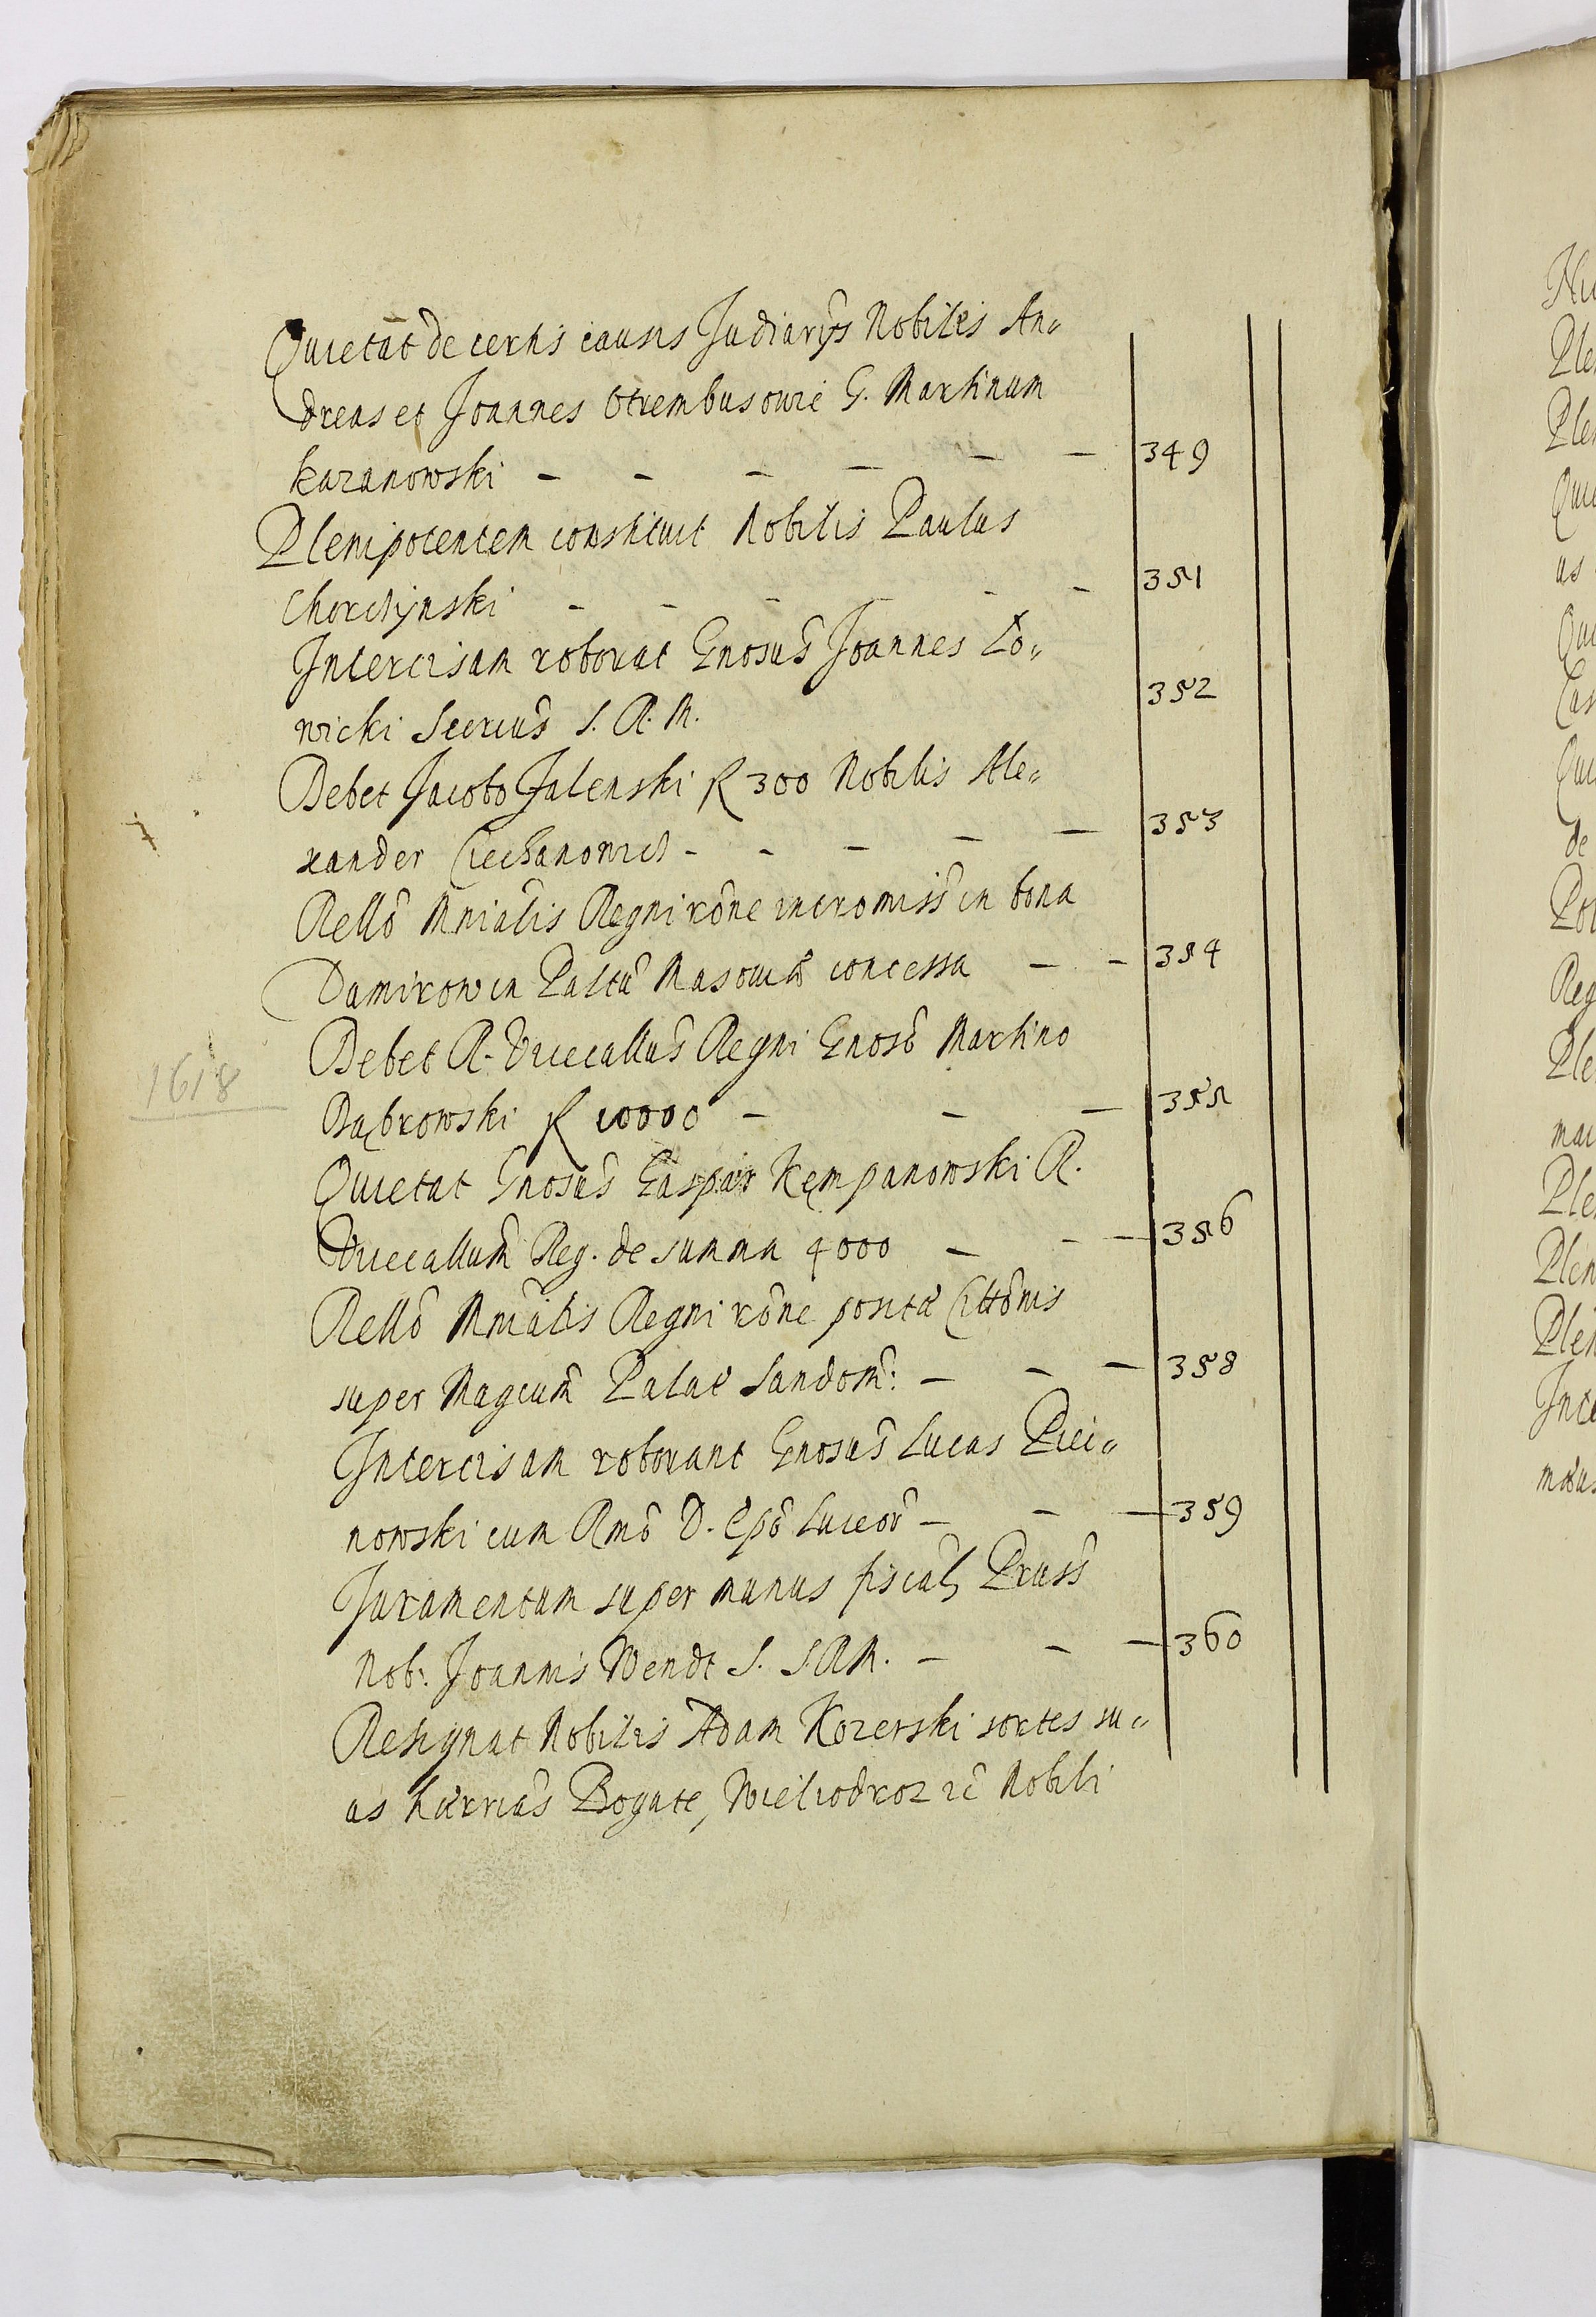 Quietāt de certis causis Judiarijs Nobiles An„
dreas et Joannes Otrembusowie G. Martinum
Kazanowski – – – – – – 349
Plenipotentem constituit Nobilis Paulus
– – – – – – 351
Intercisam roborat Gnosus Joannes Lo„
wicki Secrius S. R. M. 352
Debet Jacobo Jalenski R 300 Nobilis Ale„
xander Ciechanowicz – – – – – 353
Rello Mnialis Regni rone intromiss in bona
Damirow in Paltu Masouiæ concessa – – 354
Debet R. Vicecallus Regni Gnoso Martino
Dąbrowski R 10000 – – – 355
1618
Quietat Gnosus Gaspar Kęmpanowski R.
Vicecallum Reg. de summa 4000 – – – 356
Rello Mnialis Regni rone positæ Cittonis
super Magcum Palat Sandom: – – – 358
Intercisam roborant Gnosus Lucas Piei„
nowski cum Rmo D. Epo Luceor – – – 359
Juramentum super munus fiscal Pruss
Nob: Joannis Wendt S. S. R. M. – – – 360
Resignat Nobilis Adam Kozerski sortes su„
as hærrias Bogate, Wieliodroz &c Nobili